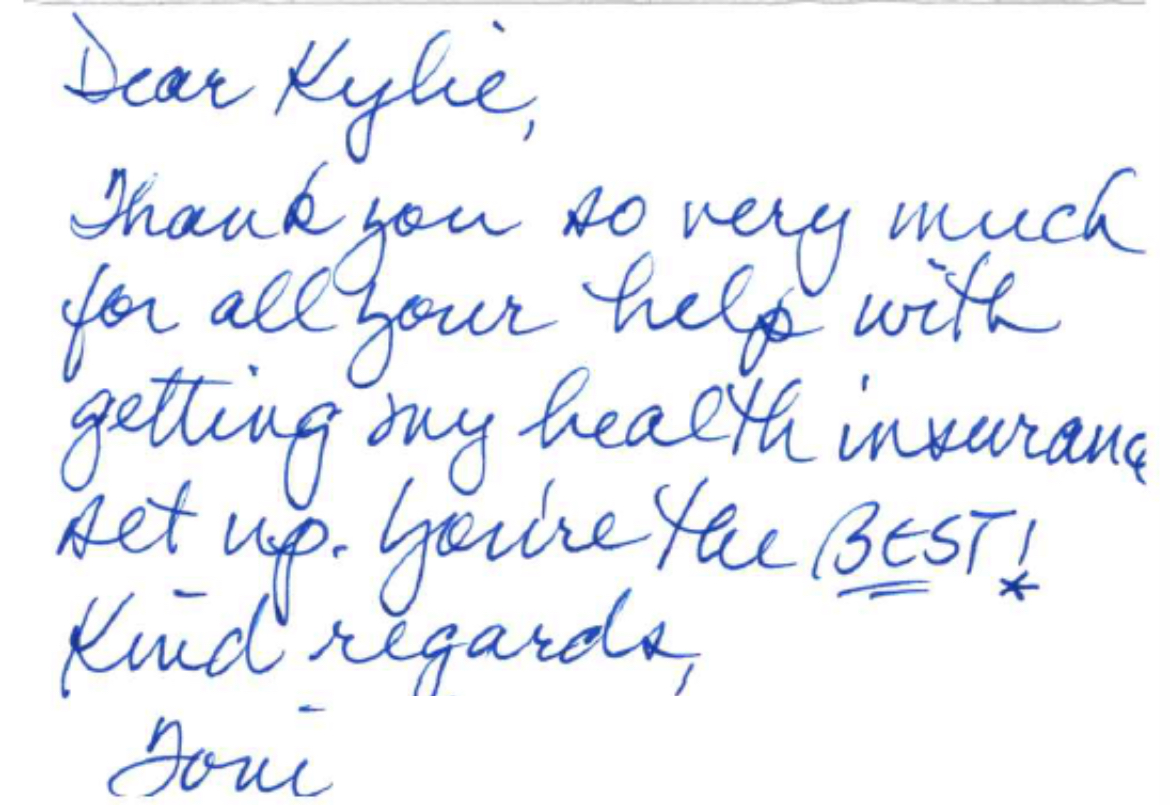 Dear Kylie,
Thank you so very much
for all your help with
getting my health insuranc
set up. You're the BEST!
Kind regards,
Toni